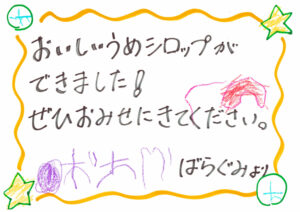 おいしいうめシロップが
できました!
ぜひおみせにきてください。
ばらぐみより